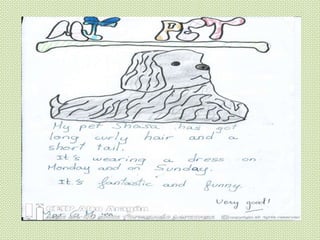 MY PET
My pet Shasa has got
long curly hair and a
short tail.
It's wearing a dress on
Monday and on Sunday.
It's fantastic and funny.
Very good!